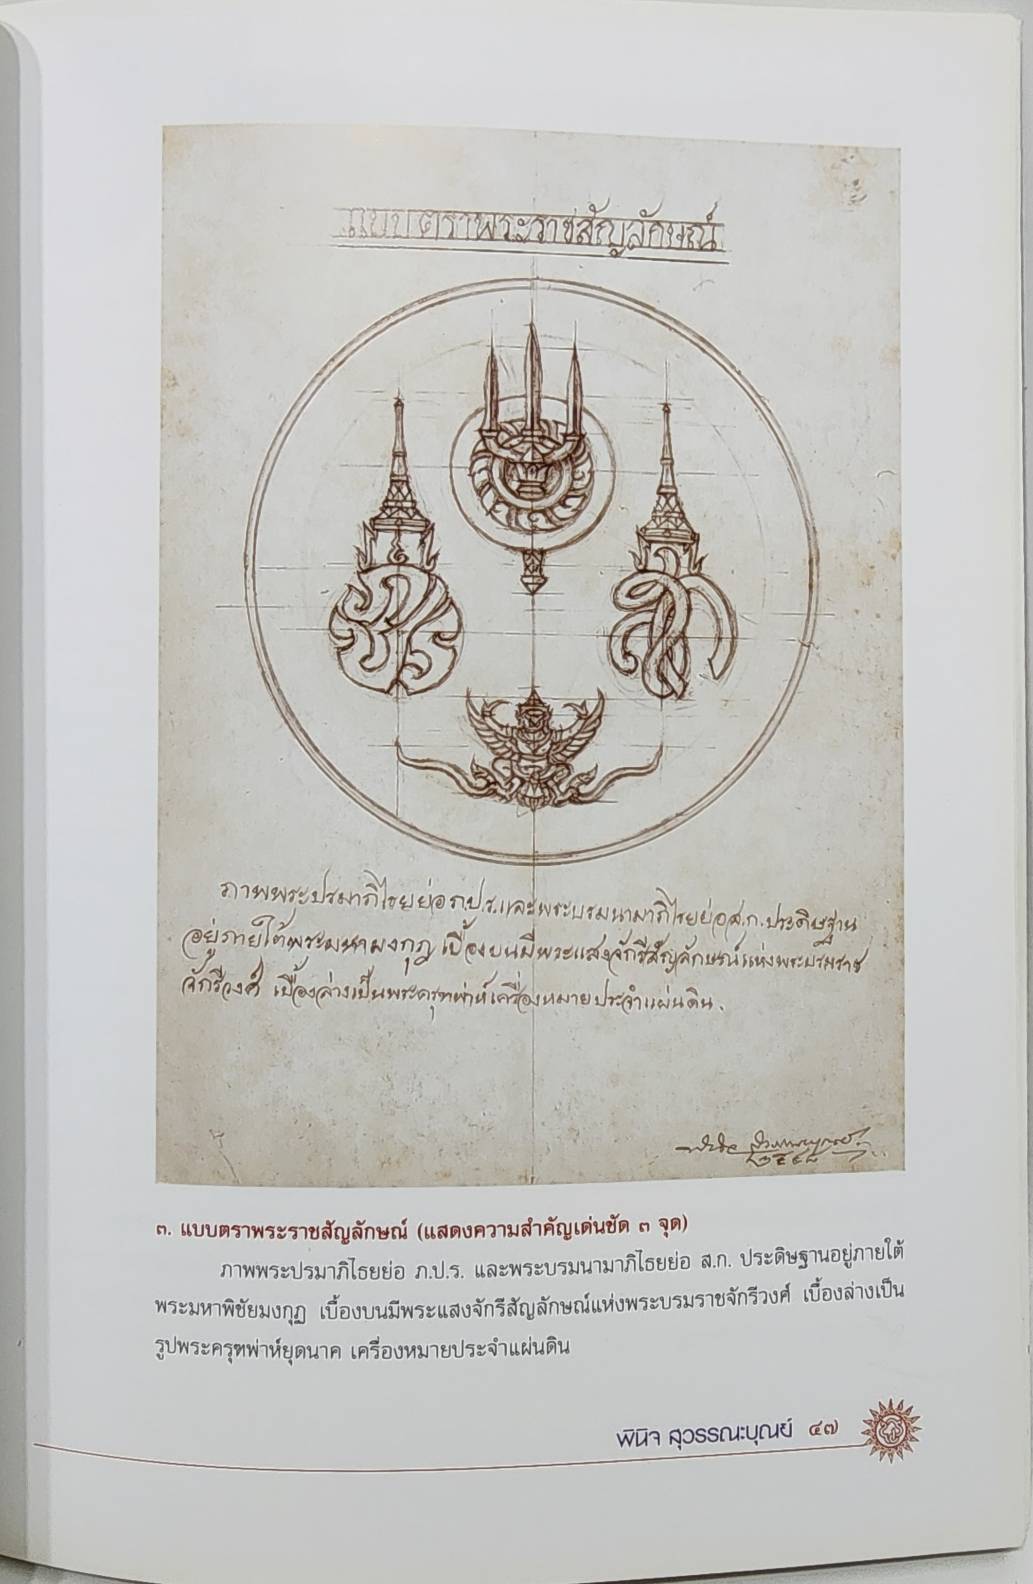 แบบตราพระราชสัญลักษณ์
ภาพพระปรมาภิไธยย่อ ภ.ป.ร. และพระบรมนามาภิไธยย่อ ส.ก. ประดิษฐาน
อยู่ภายใต้พระมหามงกุฎ เบื้องบนมีพระแสงจักรีสัญลักษณ์แห่งพระบรมราช
จักรีวงศ์ เบื้องล่างเป็นพระครุฑพ่าห์เครื่องหมายประจำแผ่นดิน.
๓. แบบตราพระราชสัญลักษณ์ (แสดงความสำคัญเด่นชัด ๓ จุด)
ภาพพระปรมาภิไธยย่อ ภ.ป.ร. และพระบรมนามาภิไธยย่อ ส.ก. ประดิษฐานอยู่ภายใต้
พระมหาพิชัยมงกุฎ เบื้องบนมีพระแสงจักรีสัญลักษณ์แห่งพระบรมราชจักรีวงศ์ เบื้องล่างเป็น
รูปพระครุฑพ่าห์ยุดนาค เครื่องหมายประจำแผ่นดิน
พินิจ สุวรรณะบุณย์ ๔๗